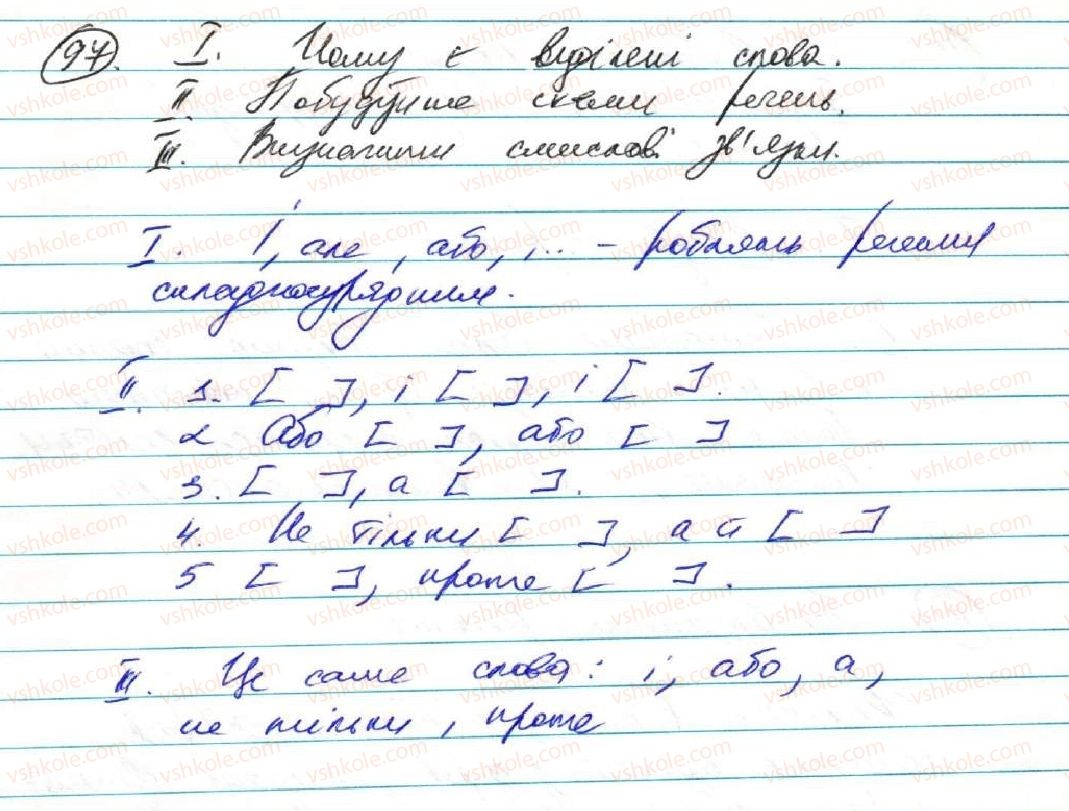 97. I. Чому є виділені слова.
II. Побудуйте схеми речень.
III. Визначити смислові зв'язки.
I. І, але, або, ... – роблять речення
складносурядним.
II. 1. [ ], і [ ], і [ ].
2 Або [ ], або [ ]
3. [ ], а [ ].
4. Не тільки [ ], а й [ ]
5 [ ], проте [ ].
III. Це саме слова: і, або, а,
не тільки, проте